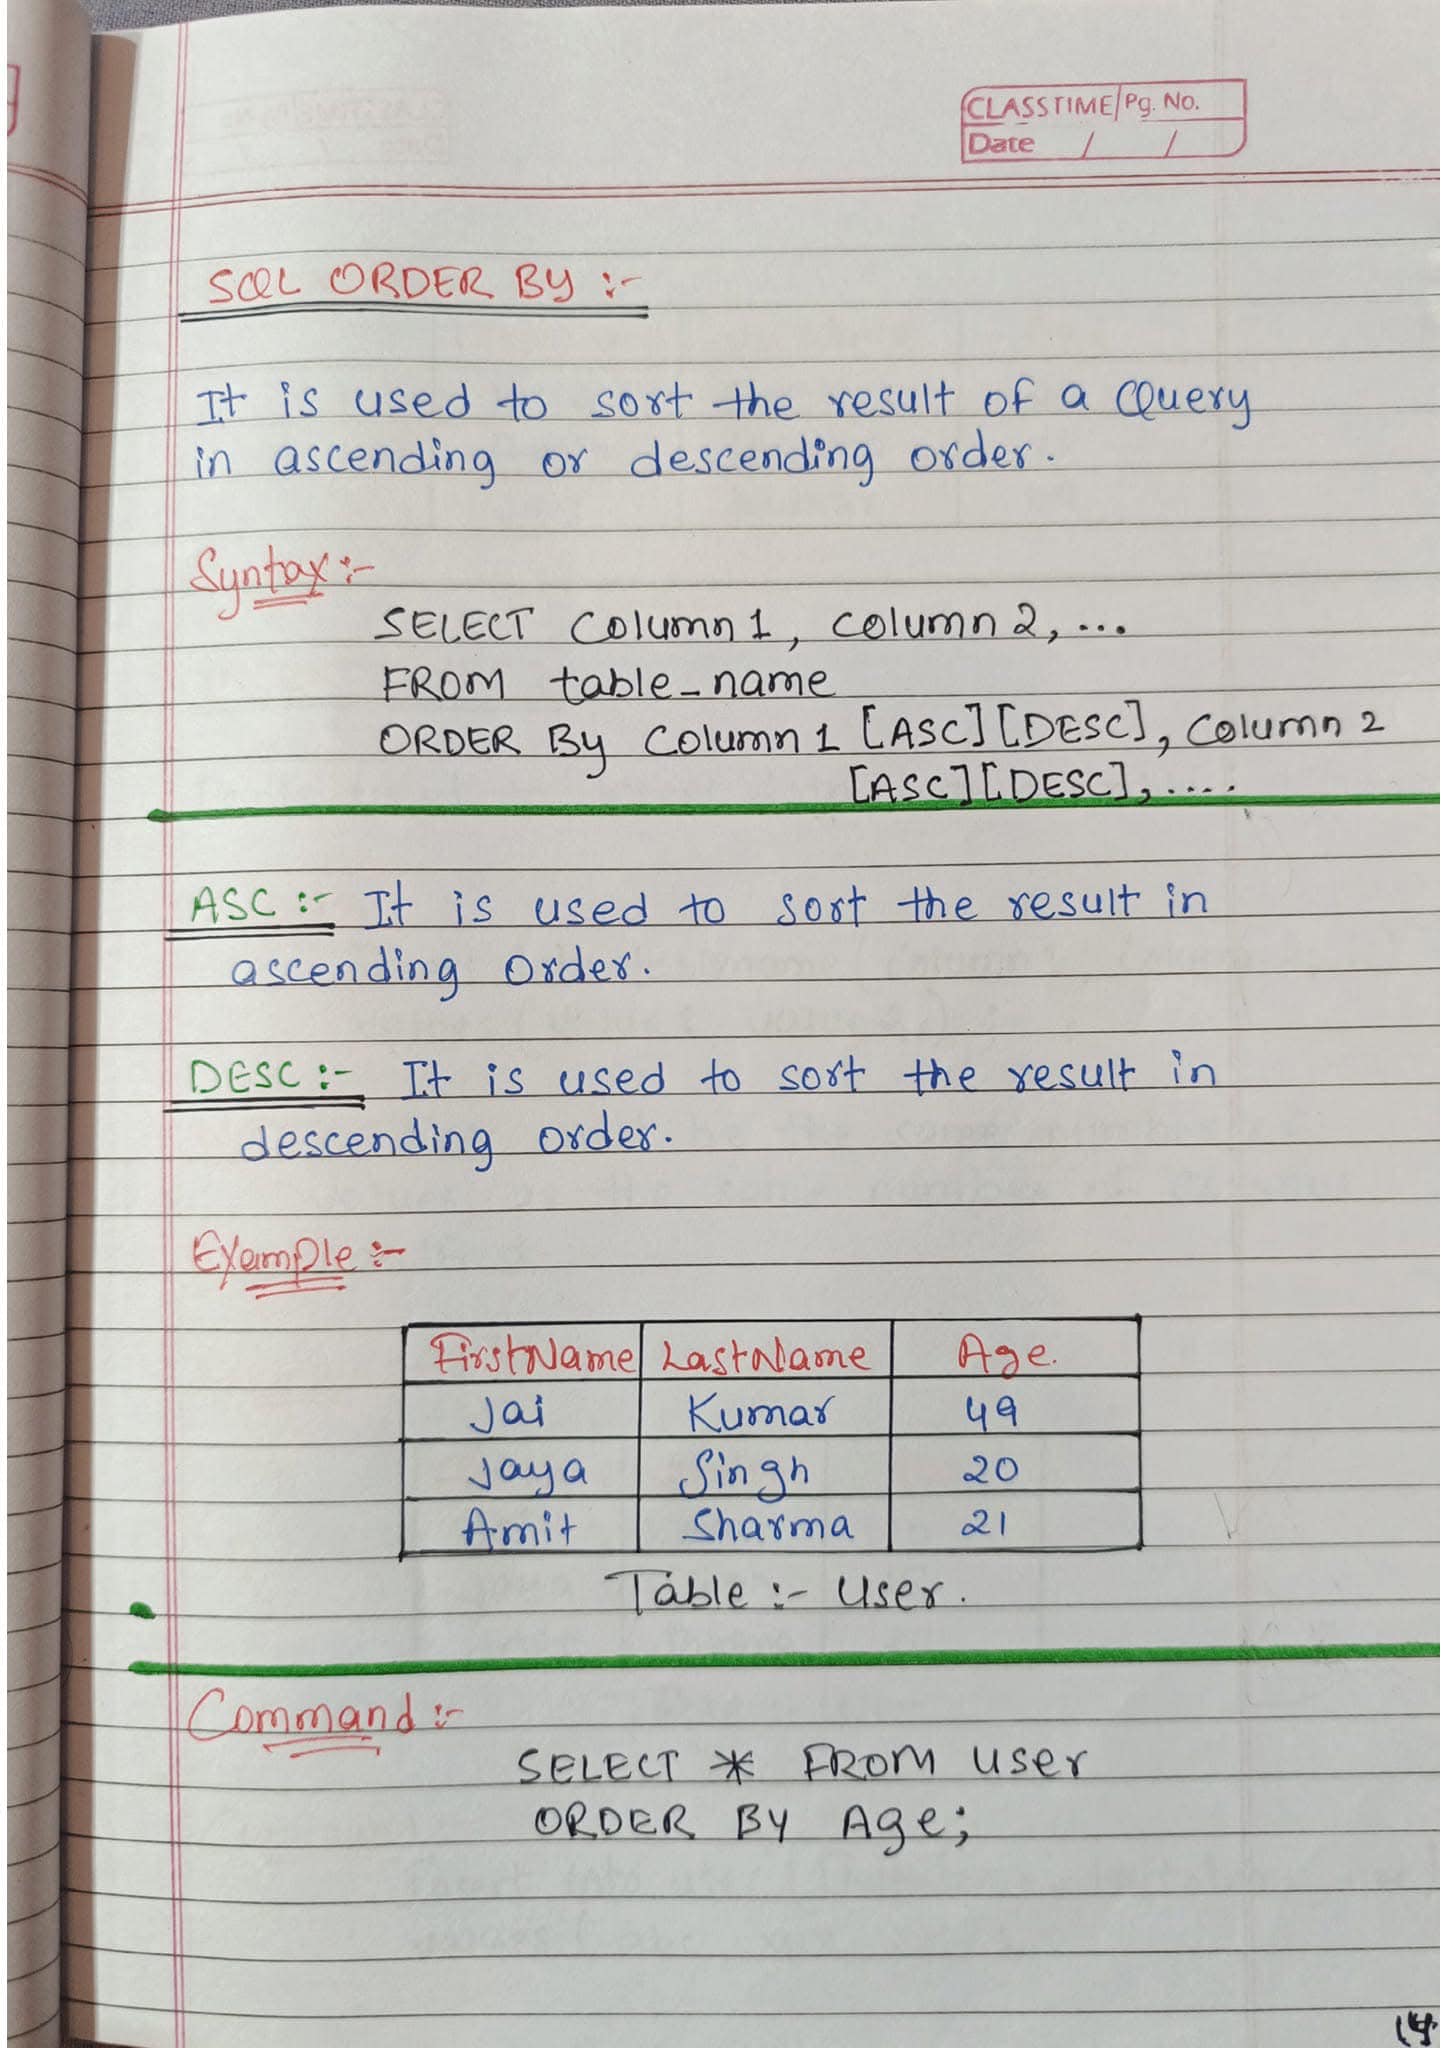 CLASSTIME/Pg. No.
Date / /
SQL ORDER By :-
It is used to sort the result of a Query
in ascending or descending order.
Syntax :-
SELECT Column 1, Column 2, ...
FROM table_name
ORDER By Column 1 [ASC][DESC], Column 2
[ASC][DESC], ....
ASC :- It is used to sort the result in
ascending order.
DESC :- It is used to sort the result in
descending order.
Example :-
FirstName LastName Age.
Jai Kumar 49
Jaya Singh 20
Amit Sharma 21
Table :- User.
Command :-
SELECT * FROM user
ORDER BY Age;